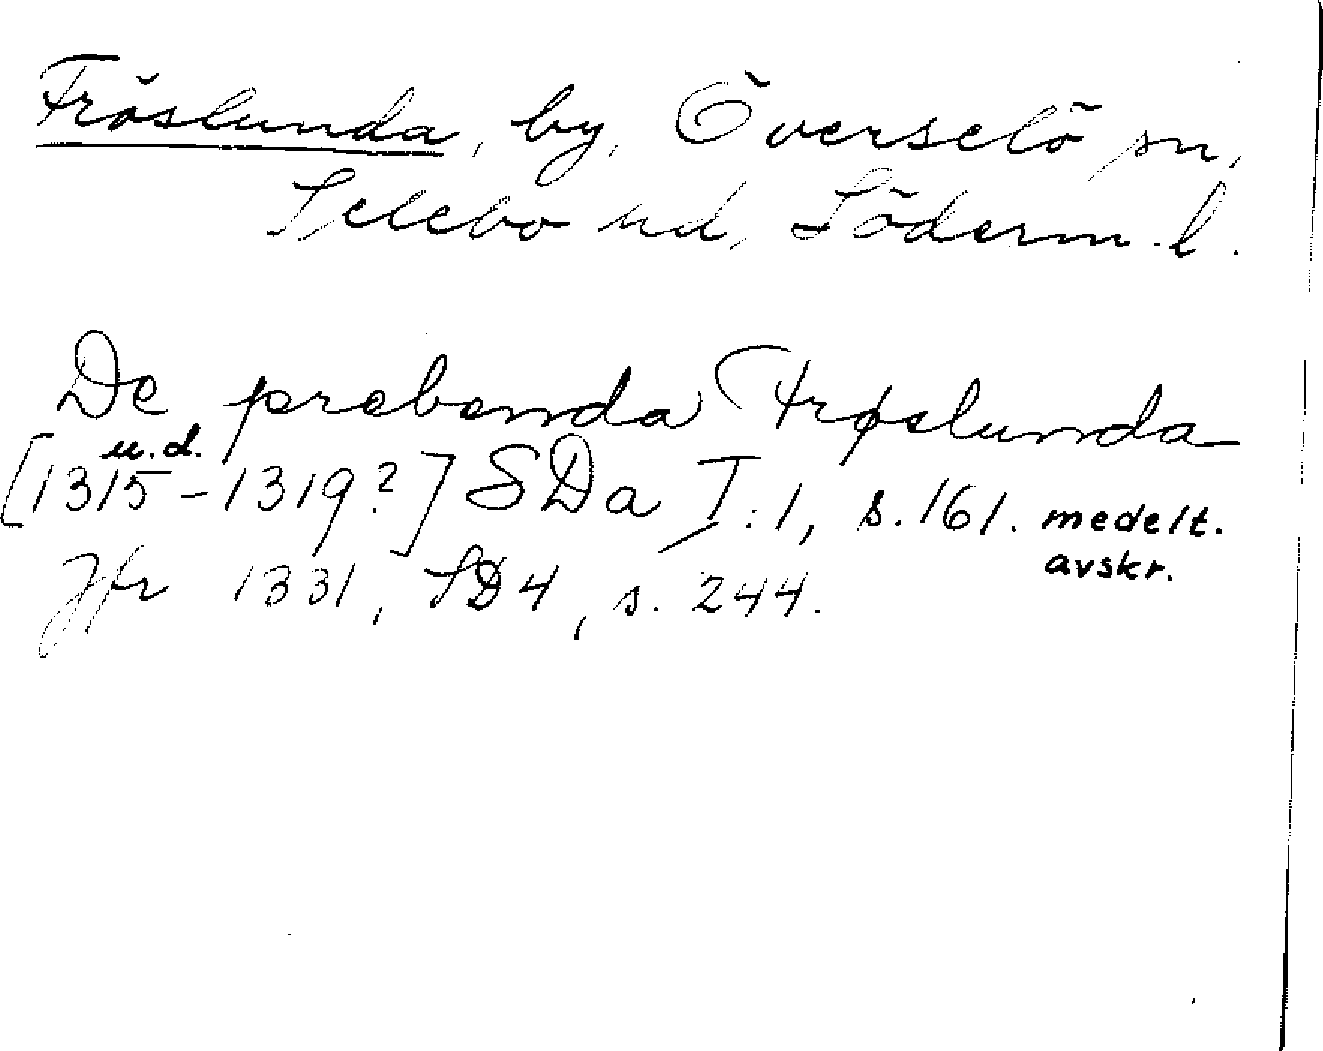 Fröslunda, by, Överselö sn,
Selebo hd, Söderm. l.
De prebenda Frøslunda
u.d.
[1315-1319?] SDa I:1, s. 161. medelt.
avskr.
Jfr 1331, SD4, s. 244.